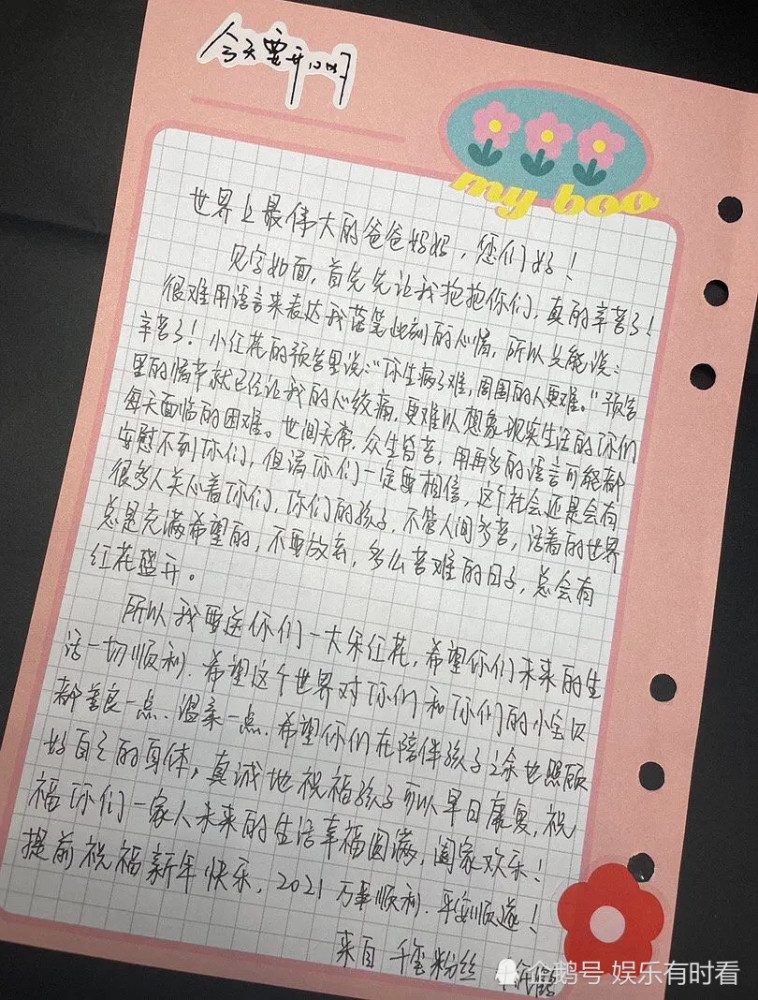 今天要开心呀
my boo
世界上最伟大的爸爸妈妈，您们好！
见字如面，首先先让我抱抱你们，真的辛苦了！
很难用语言来表达我落笔此刻的心情，所以只能说：
辛苦了！小红花的预告里说："你生病了难，周围的人更难。"预告
里的情节就已经让我的心绞痛，更难以想象现实生活的你们
每天面临的困难。世间无常，众生皆苦，用再多的语言可能都
安慰不到你们，但请你们一定要相信，这个社会还是会有
很多人关心着你们，你们的孩子，不管人间多苦，活着的世界
总是充满希望的，不要放弃，多么苦难的日子，总会有
红花盛开。
所以我要送你们一大朵红花，希望你们未来的生
活一切顺利．希望这个世界对你们和你们的小宝贝
都善良一点．温柔一点．希望你们在陪伴孩子之余也照顾
好自己的身体，真诚地祝福孩子可以早日康复，祝
福你们一家人未来的生活幸福圆满，阖家欢乐！
提前祝福新年快乐，2021万事顺利．平安顺遂！
来自 千玺粉丝
企鹅号 娱乐有时看